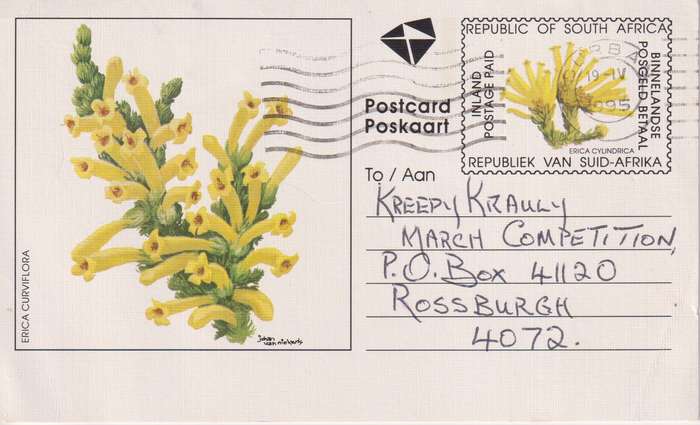 REPUBLIC OF SOUTH AFRICA
INLAND
POSTAGE PAID
BINNELANDSE
POSGELD BETAAL
ERICA CYLINDRICA
REPUBLIEK VAN SUID-AFRIKA
19-IV
Postcard
Poskaart
To / Aan
KREEPY KRAULY
MARCH COMPETITION,
P.O. BOX 41120
ROSSBURGH
4072.
ERICA CURVIFLORA
johan
van niekerk